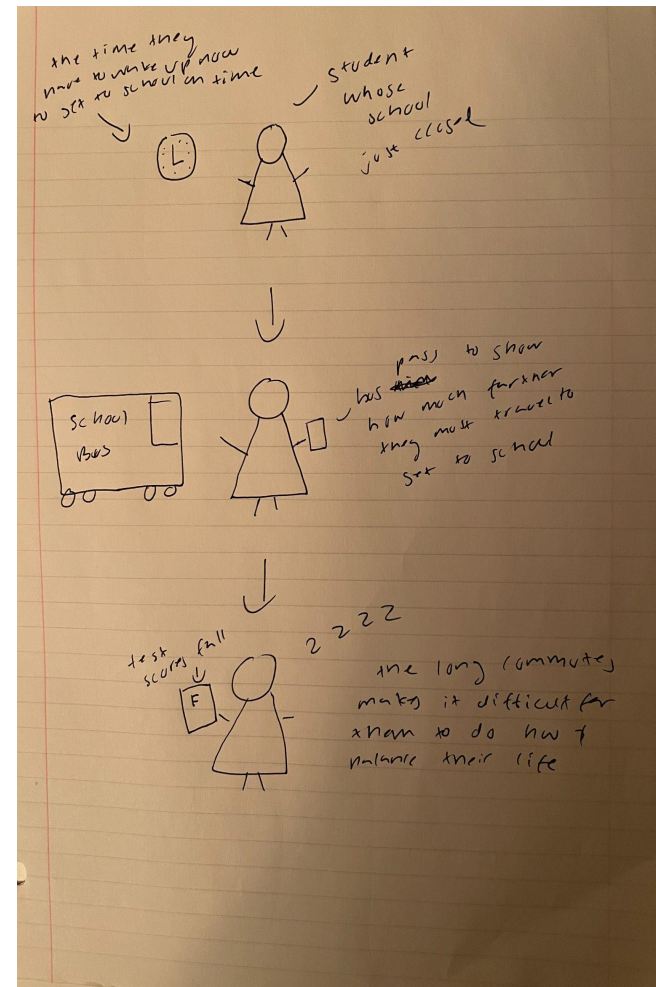 the time they
have to wake up now
to get to school on time
student
whose
school
just closed
L
pass to show
bus
how much further
they must travel to
get to school
School
Bus
z z z z
test
scores fall
F
the long commutes
makes it difficult for
them to do hw &
balance their life